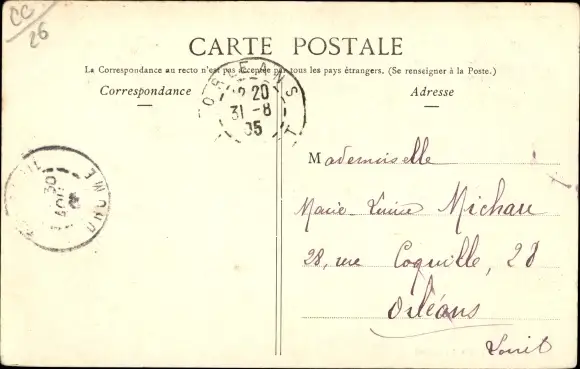 CC
26
CARTE POSTALE
La Correspondance au recto n'est pas acceptée par tous les pays étrangers. (Se renseigner à la Poste.)
Correspondance
Adresse
ORLEANS
20
31 - 8
05
DROME
30
AOUT
Mademoiselle
Marie Louise Michau
28, rue Coquille, 28
Orléans
Loiret